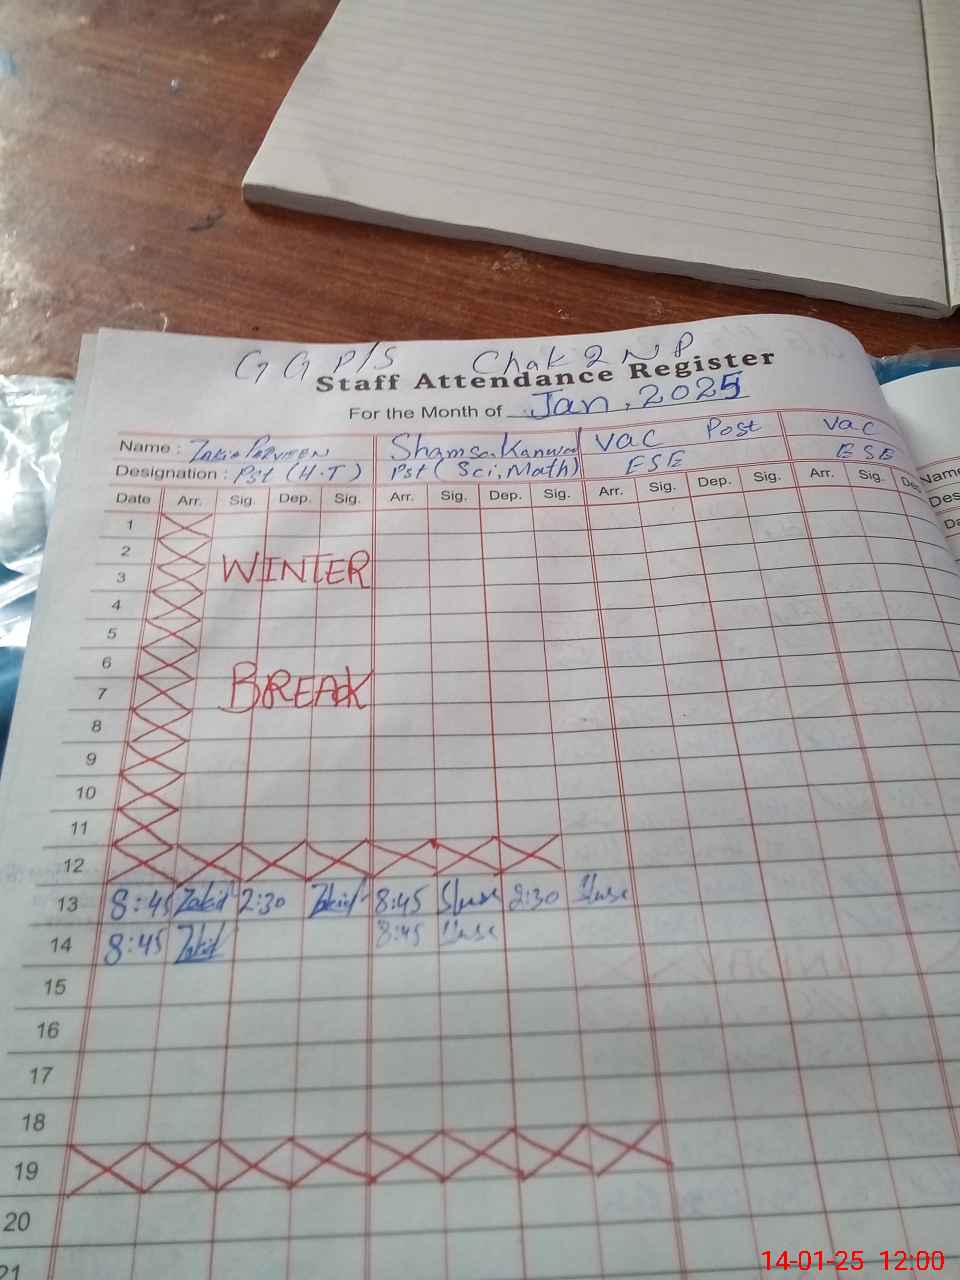 G G P/S Chak 2 NP
Staff Attendance Register
For the Month of Jan, 2025
Name : Zakia Parveen Shamsa Kanwal Vac Post Vac
Designation : Pst (H.T) Pst (Sci, Math) ESE ESE
Date Arr. Sig. Dep. Sig. Arr. Sig. Dep. Sig. Arr. Sig. Dep. Sig. Arr. Sig. De
Name
Des
Da
1
2
3 WINTER
4
5
6
7 BREAK
8
9
10
11
12
13 8:45 Zakia 2:30 Zakia 8:45 2:30
14 8:45 Zakia 8:45
15
16
17
18
19
20
21
14-01-25 12:00